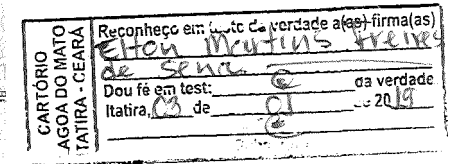 CARTÓRIO
AGOA DO MATO
ITATIRA - CEARÁ
Reconheço em testo da verdade a(as) firma(as)
Elton Martins Freires
de Sena
Dou fé em test: da verdade
Itatira, 03 de 01 de 2019